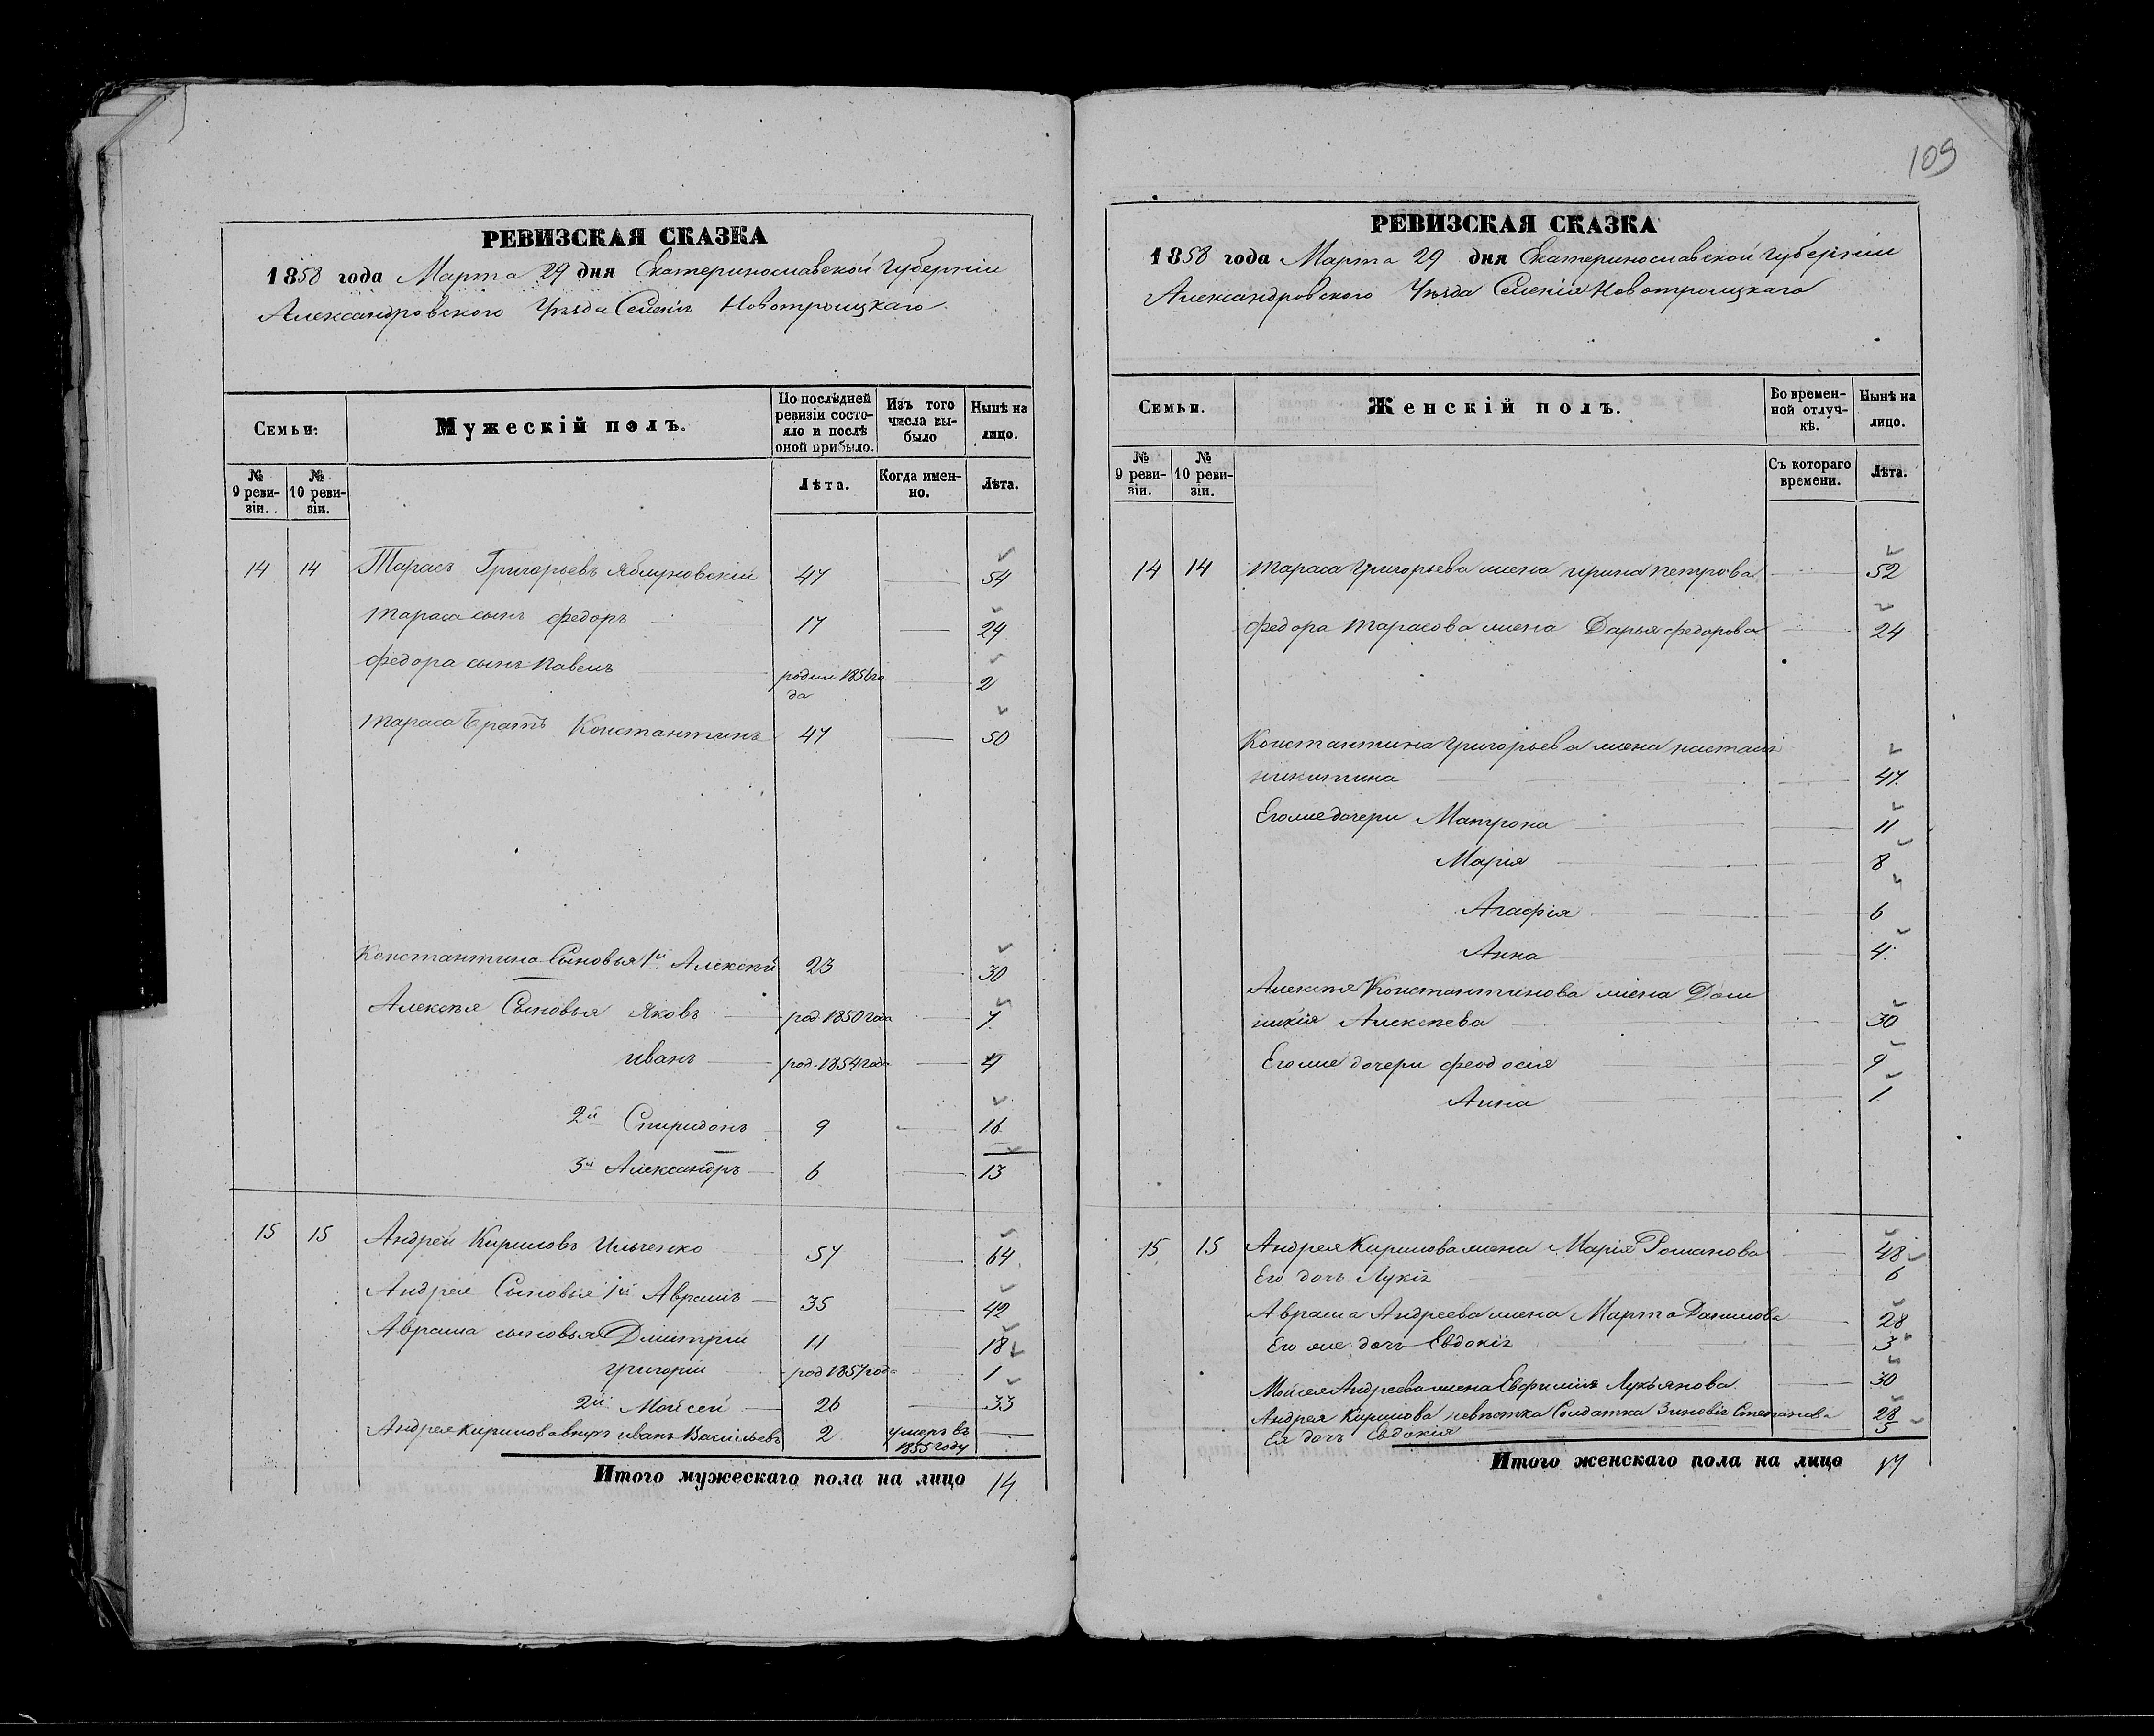 РЕВИЗСКАЯ СКАЗКА
1858 года Марта 29 дня Екатеринославской Губернии
Александровского Уезда Селенія Новотроицкаго
Семьи:
Мужескій полъ.
По послѣдней ревизіи состояло и послѣ оной прибыло.
Изъ того числа выбыло
Нынѣ на лицо.
№ 9 ревизіи.
№ 10 ревизіи.
Лѣта.
Когда именно.
Лѣта.
14 14 Тарасъ Григорьевъ Яблуновскій 47 — 54
Тараса сынъ Федоръ 17 — 24
Федора сынъ Павелъ родил 1856 года — 2
Тараса Братъ Константинъ 47 — 50
Константина Сыновья 1й Алексѣй 23 — 30
Алексѣя Сыновья Яковъ род. 1850 года — 7
иванъ род. 1854 года — 4
2й Спиридонъ 9 — 16
3й Александръ 6 — 13
15 15 Андрей Кириловъ Ильченко 57 — 64
Андрея Сыновья 1й Аврамъ 35 — 42
Аврама сыновья Дмитрій 11 — 18
григорій род 1857 года — 1
2й Мойсей 26 — 33
Андрея Кирилова внукъ иванъ Васильевъ 2 умеръ въ 1855 году —
Итого мужескаго пола на лицо 14
109
РЕВИЗСКАЯ СКАЗКА
1858 года Марта 29 дня Екатеринославской Губерніи
Александровского Уезда Селенія Новотроицкаго
Семьи.
Женскій полъ.
Во временной отлучкѣ.
Нынѣ на лицо.
№ 9 ревизіи.
№ 10 ревизіи.
Съ котораго времени.
Лѣта.
14 14 Тараса Григорьева жена ирина петрова — 52
Федора Тарасова жена Дарья федорова — 24
Константина григорьева жена настасія
никитина — 47
Его же дочери Матрона — 11
Марія — 8
Агафія — 6
Анна — 4
Алексѣя Константинова жена Дом
никія Алексѣева — 30
Его же дочери феодосія — 9
Анна — 1
15 15 Андрея Кирилова жена Марія Романова — 48
Его дочь Лукія 6
Аврама Андреева жена Марта Данилова — 28
Его же дочь Евдокія 3
Мойсея Андреева жена Евфимія Лукьянова — 30
Андрея Кирилова невѣстка Солдатка Зиновія Степанова 28
Ея дочь Евдокія 5
Итого женскаго пола на лицо 17